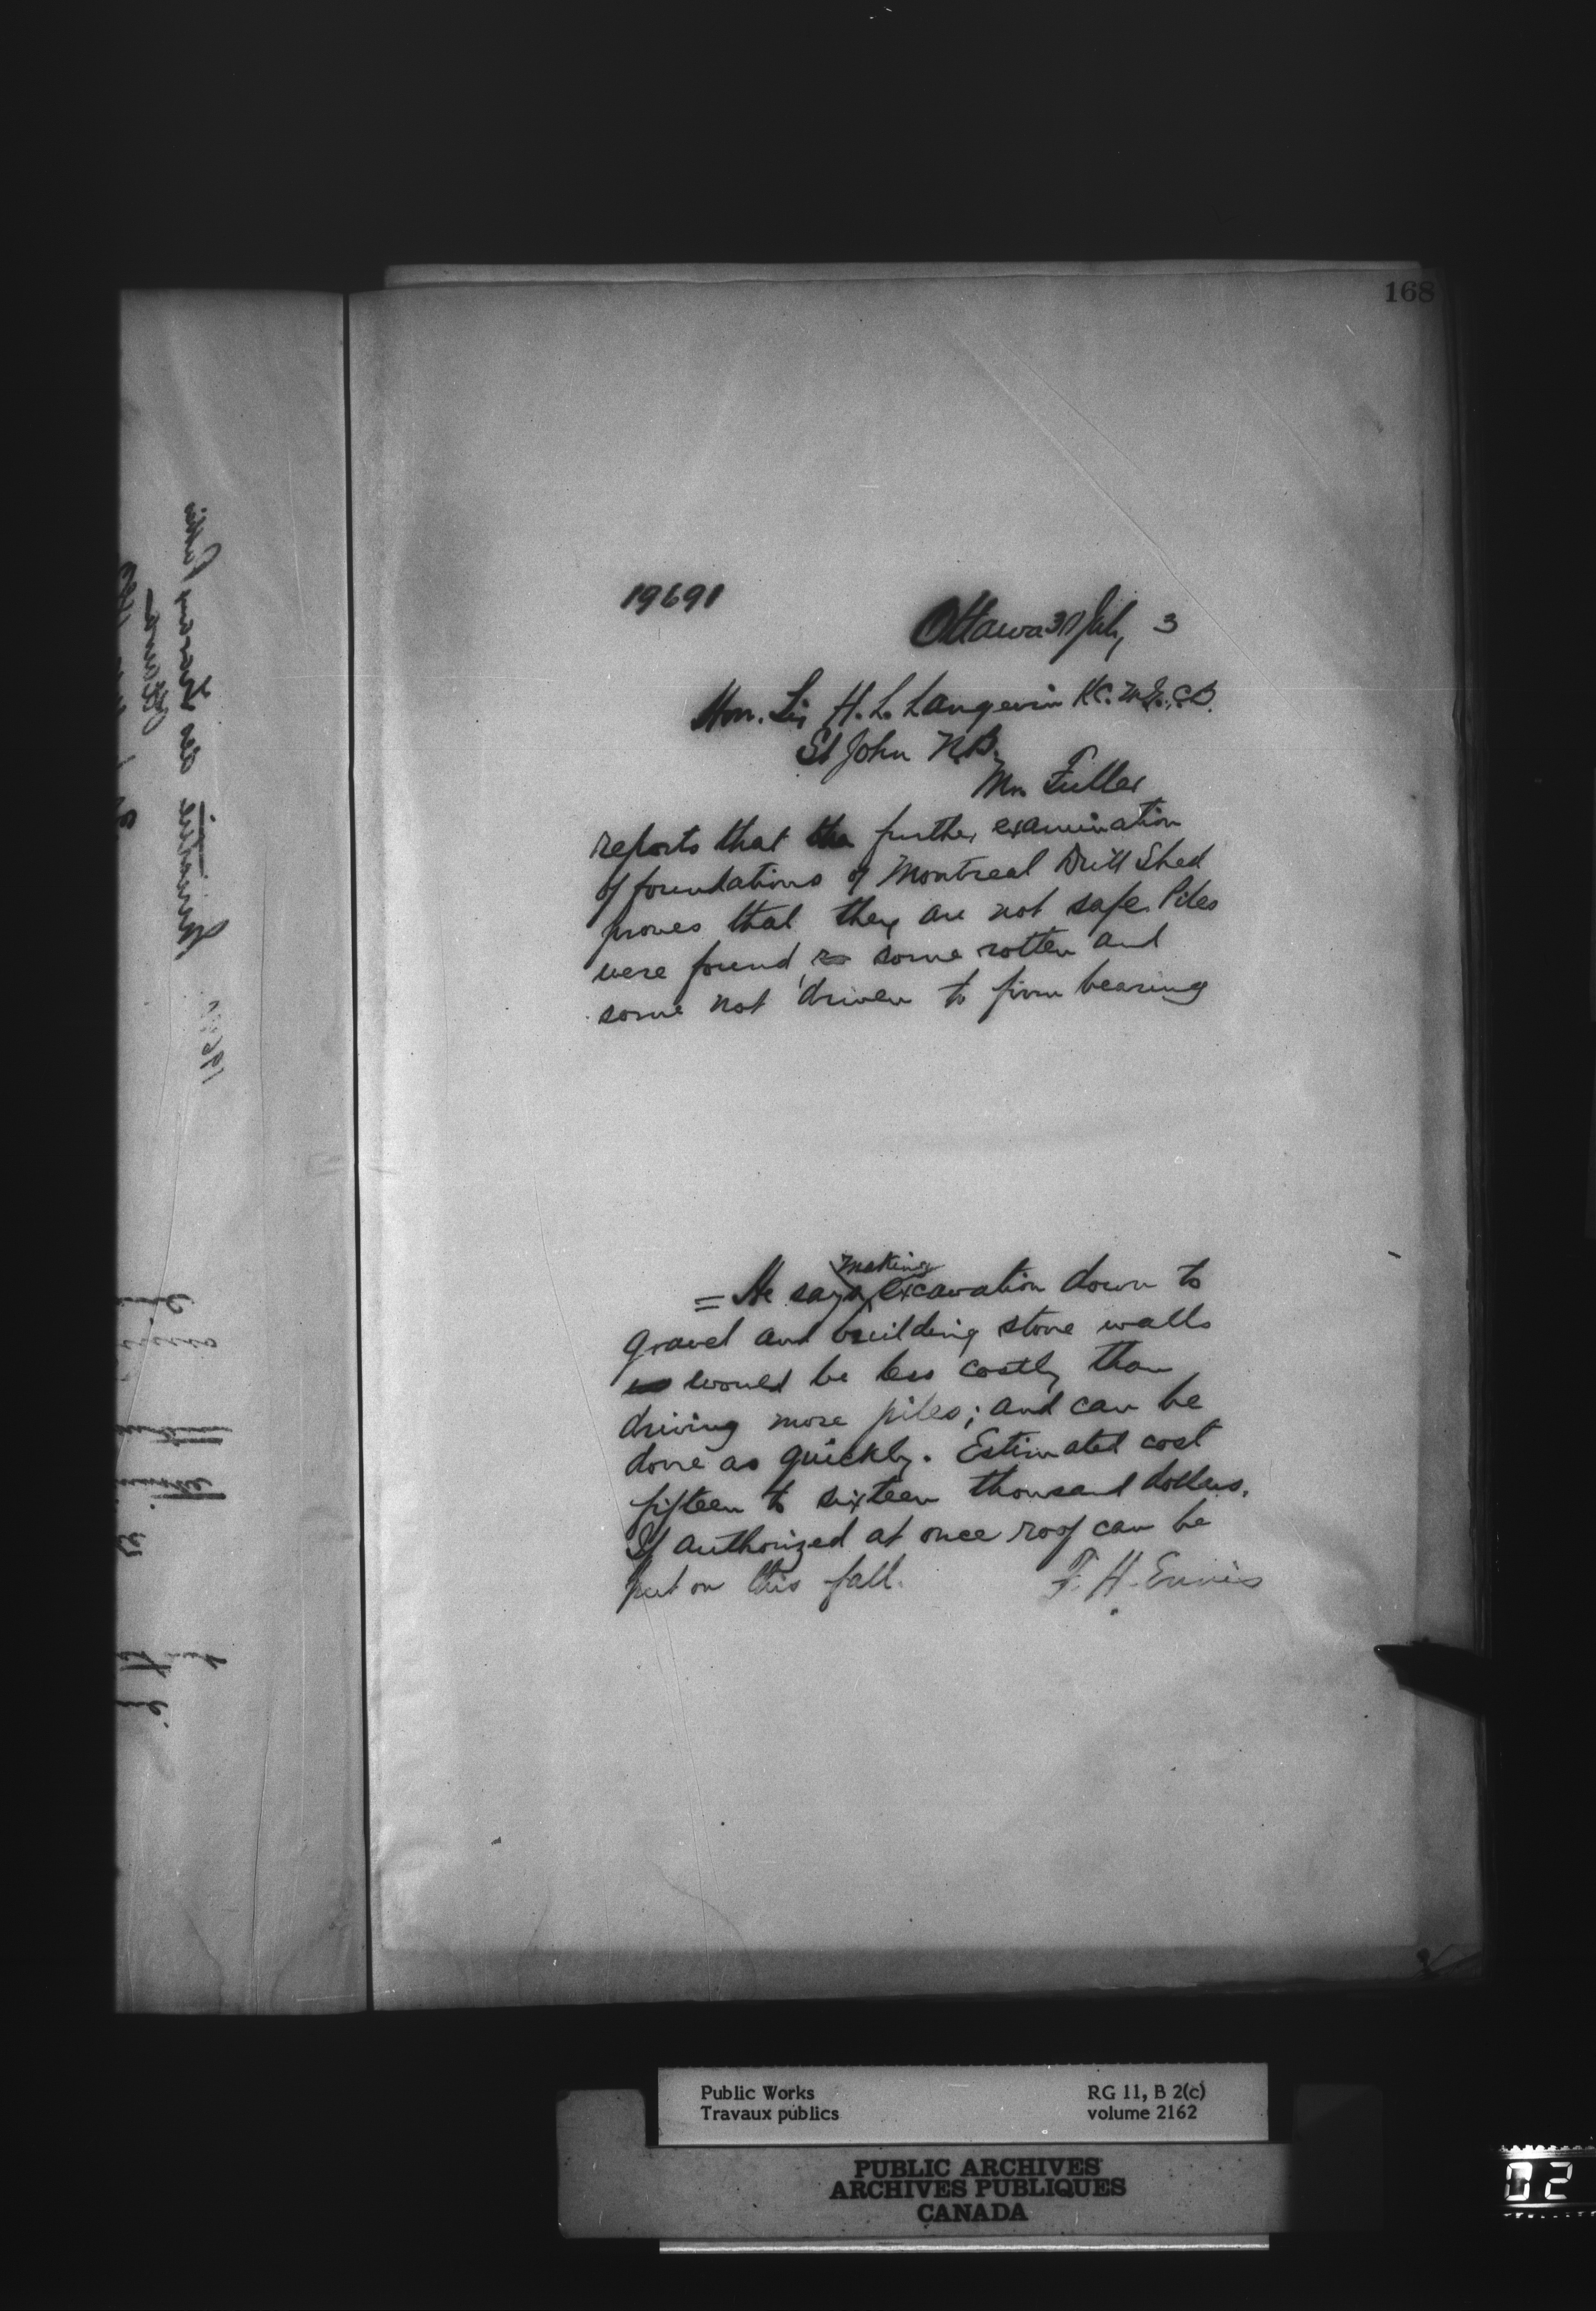 168
19691
Ottawa 31 July, 3
Hon. Sir H. L. Langevin K.C.M.G., C.B.
St John N.B.
Mr. Fuller
reports that the further examination
of foundations of Montreal Drill Shed
proves that they are not safe. Piles
were found some rotten and
some not driven to firm bearing
making
= He says excavation down to
gravel and building stone walls
would be less costly than
driving more piles; and can be
done as quickly. Estimated cost
fifteen to sixteen thousand dollars.
If authorized at once roof can be
put on this fall. F. H. Ennis
Public Works
Travaux publics
RG 11, B 2(c)
volume 2162
PUBLIC ARCHIVES
ARCHIVES PUBLIQUES
CANADA
02